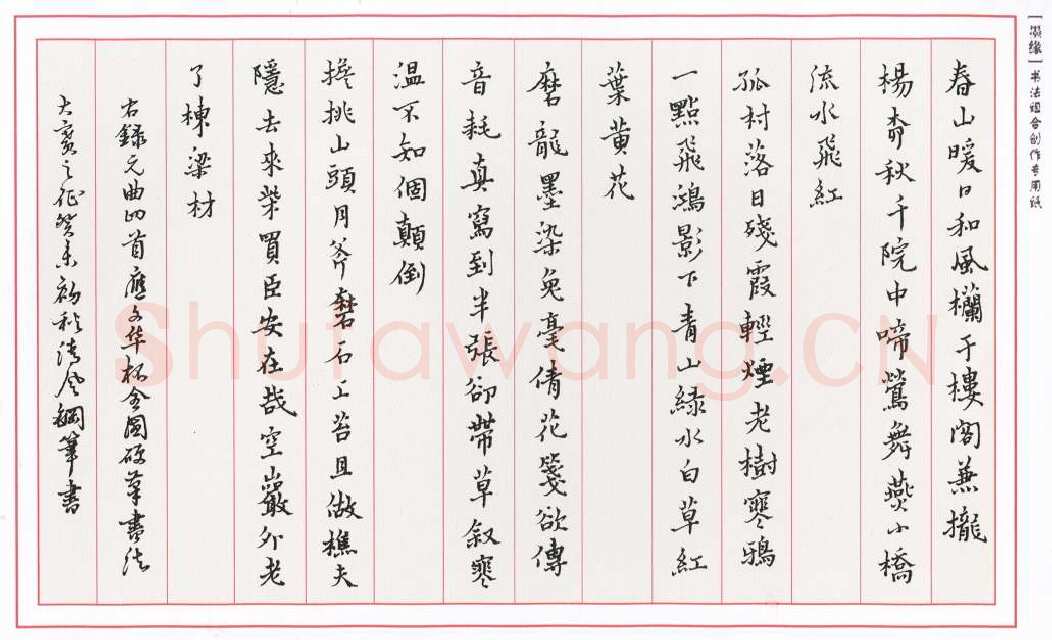 春山暖日和風欄干樓閣兼攏
楊柳秋千院中啼鶯舞燕小橋
流水飛紅
孤村落日殘霞輕煙老樹寒鴉
一點飛鴻影下青山綠水白草紅
葉黄花
磨龍墨染兔毫倩花箋欲傳
音耗真寫到半張卻帶草叙寒
溫不知個顛倒
擔挑山頭月斧磨石上苔且做樵夫
隱去來柴買臣安在哉空巖外老
了棟梁材
右錄元曲四首應文华杯全國硬筆書法
大賽之征癸未初秋清風鋼筆書
[墨缘]书法组合创作专用纸
Shufawang.CN